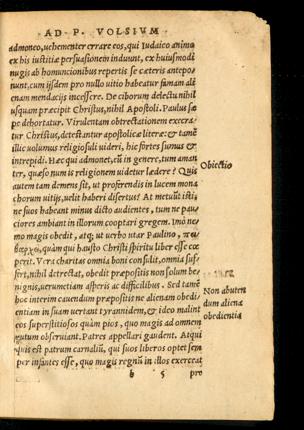 AD P. VOLSIVM
admoneo, uehementer errare eos, qui Iudaico animo
ex his iustitiæ persuasionem induunt, ex huiusmodi
nugis ab homuncionibus repertis se cæteris antepo
nunt, cum ijsdem pro nullo uitio habeatur famam ali
enam mendacijs incessere. De ciborum delectu nihil
usquam præcipit Christus, nihil Apostoli. Paulus sæ
pe dehortatur. Virulentam obtrectationem execra/
tur Christus, detestantur apostolicæ literæ: & tamẽ
illic uolumus religiosi uideri, hic fortes sumus &
intrepidi. Hæc qui admonet, cũ in genere, tum aman
ter, quæso num is religionem uidetur lædere? Quis
autem tam demens sit, ut proferendis in lucem mona
chorum uitijs, uelit haberi disertus? At metuũt isti,
ne suos habeant minus dicto audientes, tum ne pau/
ciores ambiant in illorum cooptari gregem. Imò ne/
mo magis obedit, atq; ut uerbo utar Paulino,
quàm qui hausto Christi spiritu liber esse cœ
perit. Vera charitas omnia boni consulit, omnia suf/
fert, nihil detrectat, obedit præpositis non solum be
nignis, uerumetiam asperis ac difficilibus. Sed tamẽ
hoc interim cauendum præpositis ne alienam obedi/
entiam in suam uertant tyrannidem, & ideo malint
eos superstitiosos quàm pios, quo magis ad omnem
nutum obseruiant. Patres appellari gaudent. Atqui
quis est patrum carnaliũ, qui suos liberos optet sem
per infantes esse, quo magis regnũ in illos exerceat
b 5 pro
Obiectio
Non abuten
dum aliena
obedientia